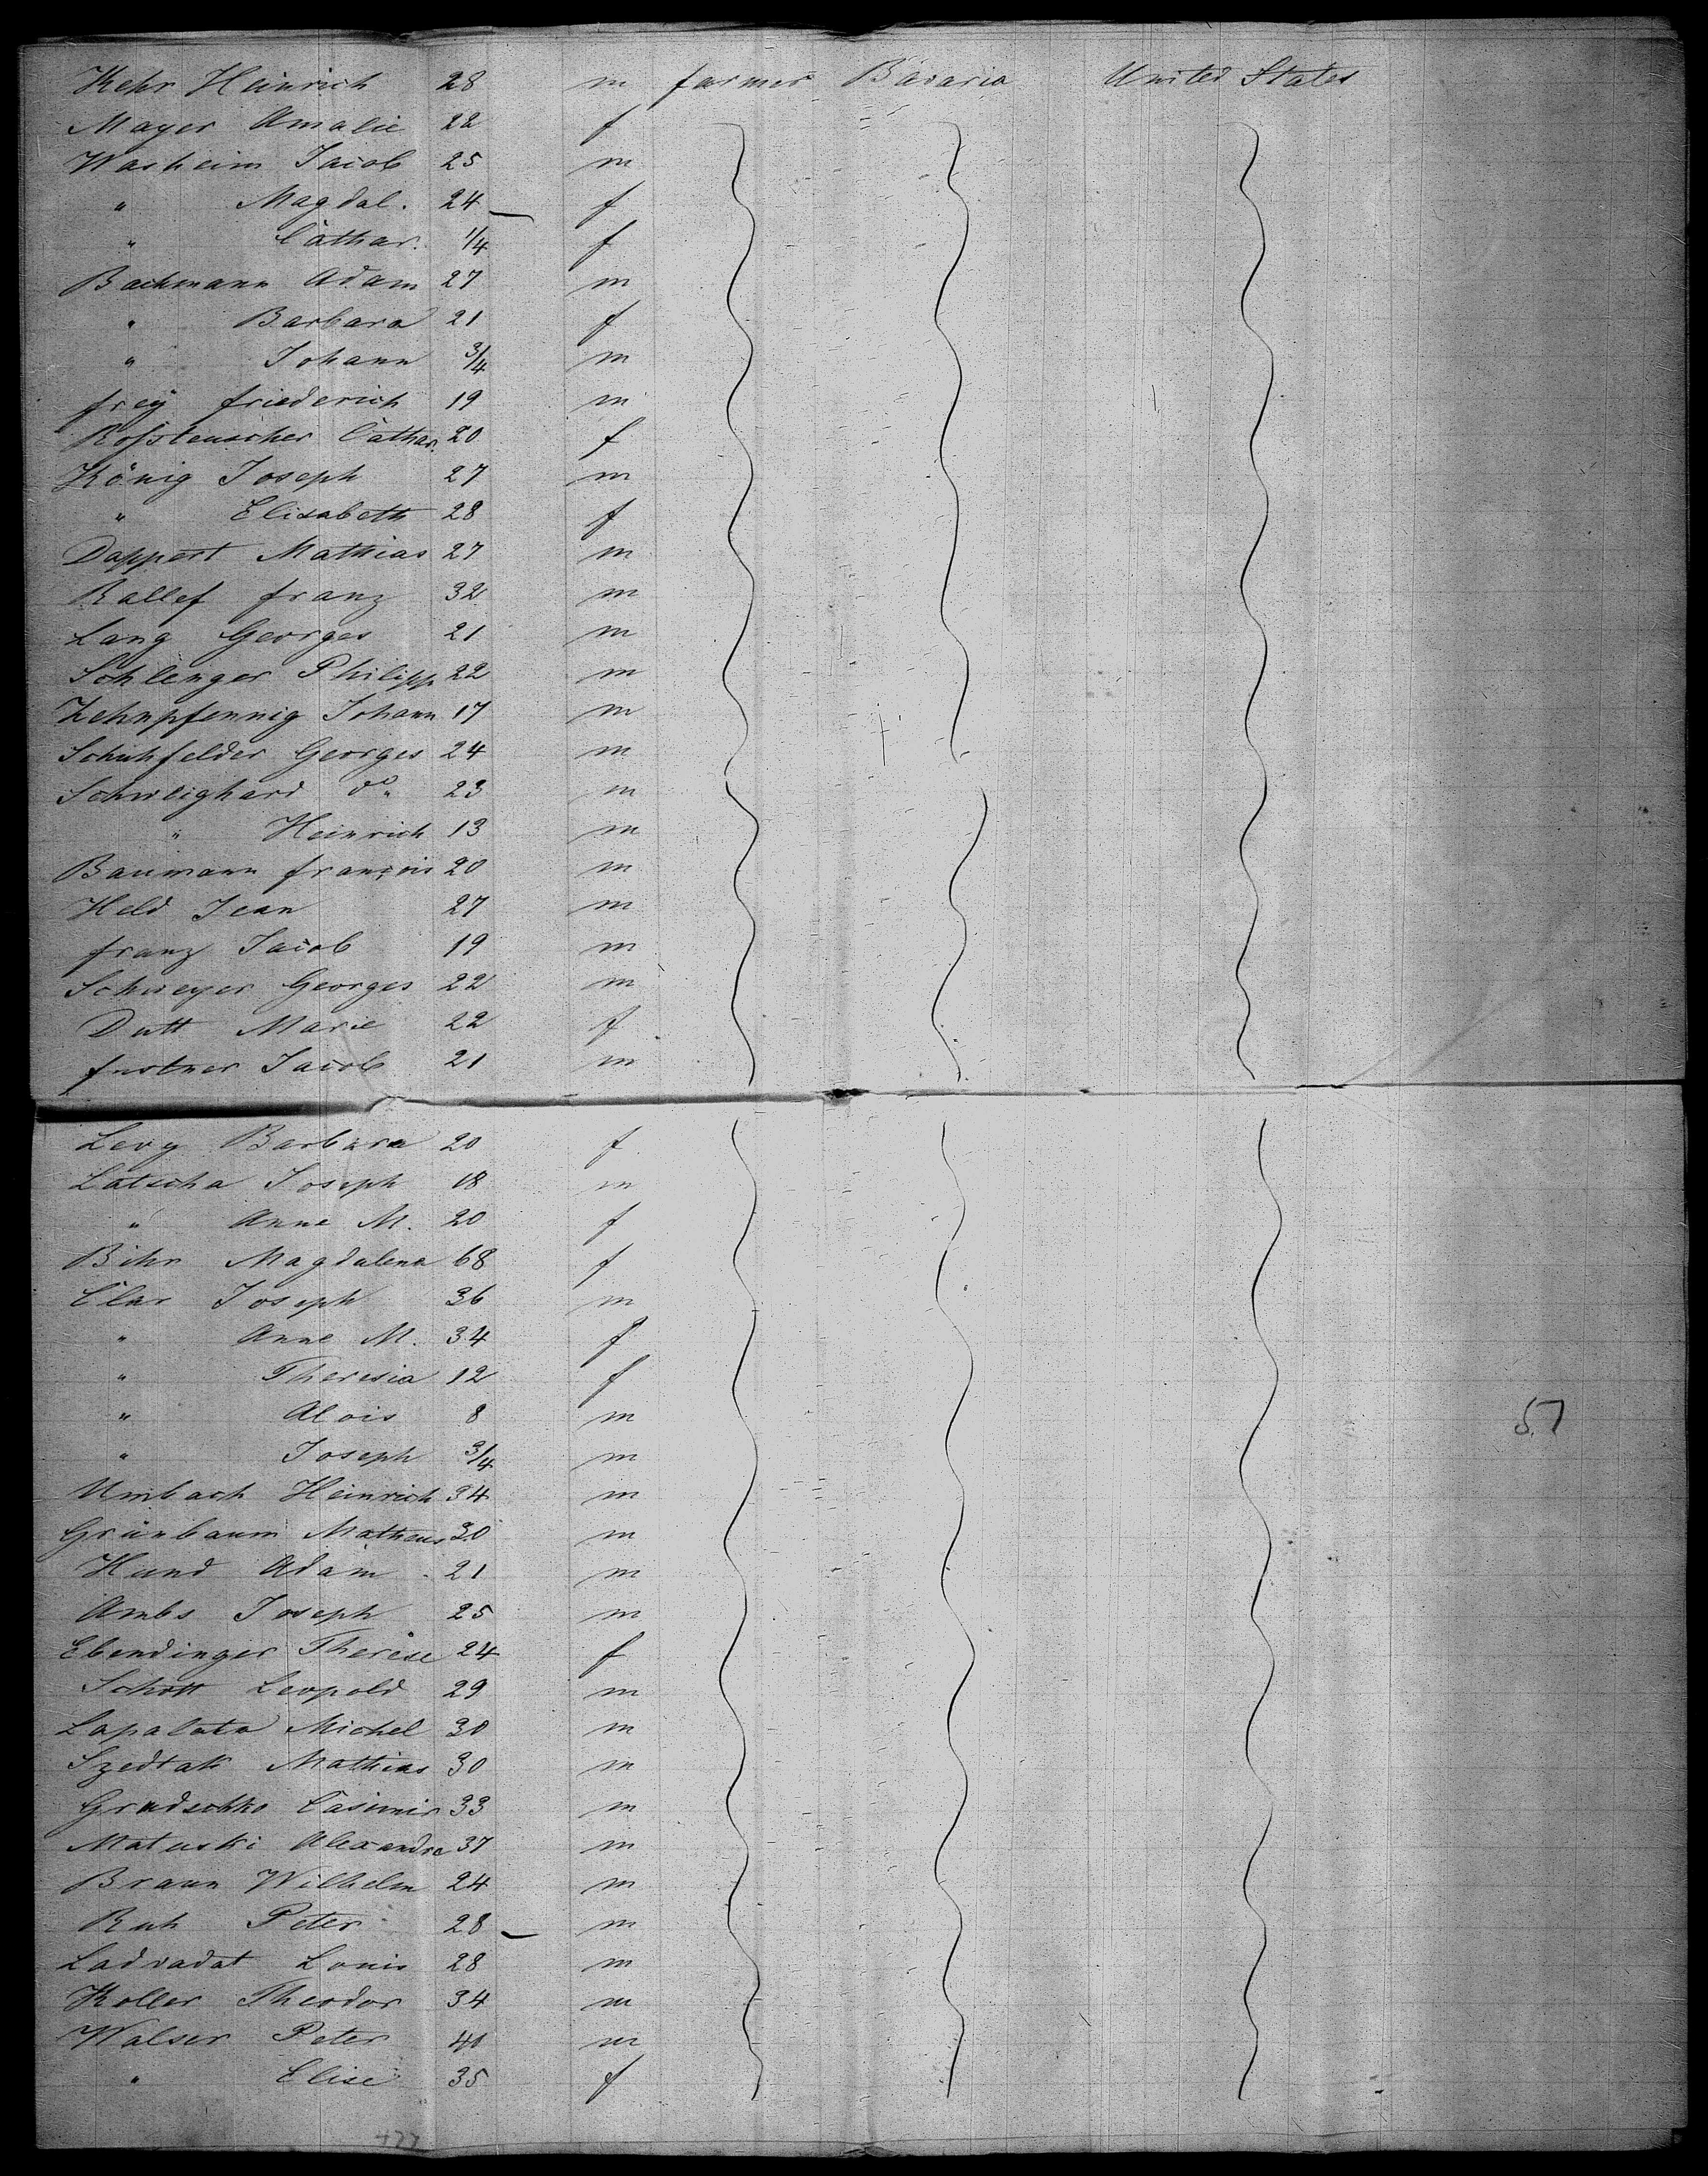 Kehr Heinrich 28 m farmer Bavaria United States
Mayer Amalie 22 f
Washeim Jacob 25 m
" Magdal. 24 f
" Cathar. 1/4 f
Bachmann Adam 27 m
" Barbara 21 f
" Johann 3/4 m
frey friederich 19 m
Roßteuscher Cathar. 20 f
König Joseph 27 m
" Elisabeth 28 f
Dappert Mathias 27 m
Rallef franz 32 m
Lang Georges 21 m
Schlenger Philipp 22 m
Zehnpfennig Johann 17 m
Schuhfelder Georges 24 m
Schweighard do. 23 m
" Heinrich 13 m
Baumann françois 20 m
Held Jean 27 m
franz Jacob 19 m
Schweyer Georges 22 m
Dutt Marie 22 f
Jacob 21 m
Levy Barbara 20 f
Latscha Joseph 18 m
" Anne M. 20 f
Bihr Magdalena 68 f
Clar Joseph 36 m
" Anne M. 34 f
" Theresia 12 f
" Alois 8 m
57
" Joseph 3/4 m
Umbach Heinrich 34 m
Grünbaum Matheus 30 m
Hund Adam 21 m
Ambs Joseph 25 m
Ebendinger Therèse 24 f
Schott Leopold 29 m
Lapalata Michel 30 m
Szedtak Mathias 30 m
Gradschko Casimir 33 m
Matuski Alexandre 37 m
Braun Wilhelm 24 m
Ruh Peter 28 m
Ladvadat Louis 28 m
Koller Theodor 34 m
Walser Peter 40 m
" Elise 35 f